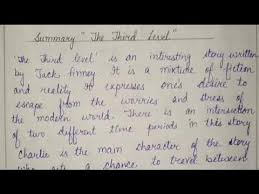 Summary "The Third Level"
'The Third level' is an interesting story written
by Jack Finney It is a mixture of fiction
and reality It expresses one's desire to
escape from the worries and stress of
the modern world. There is an intersection
of two different time periods in this story
Charlie is the main character of the story
who gets a chance to travel between